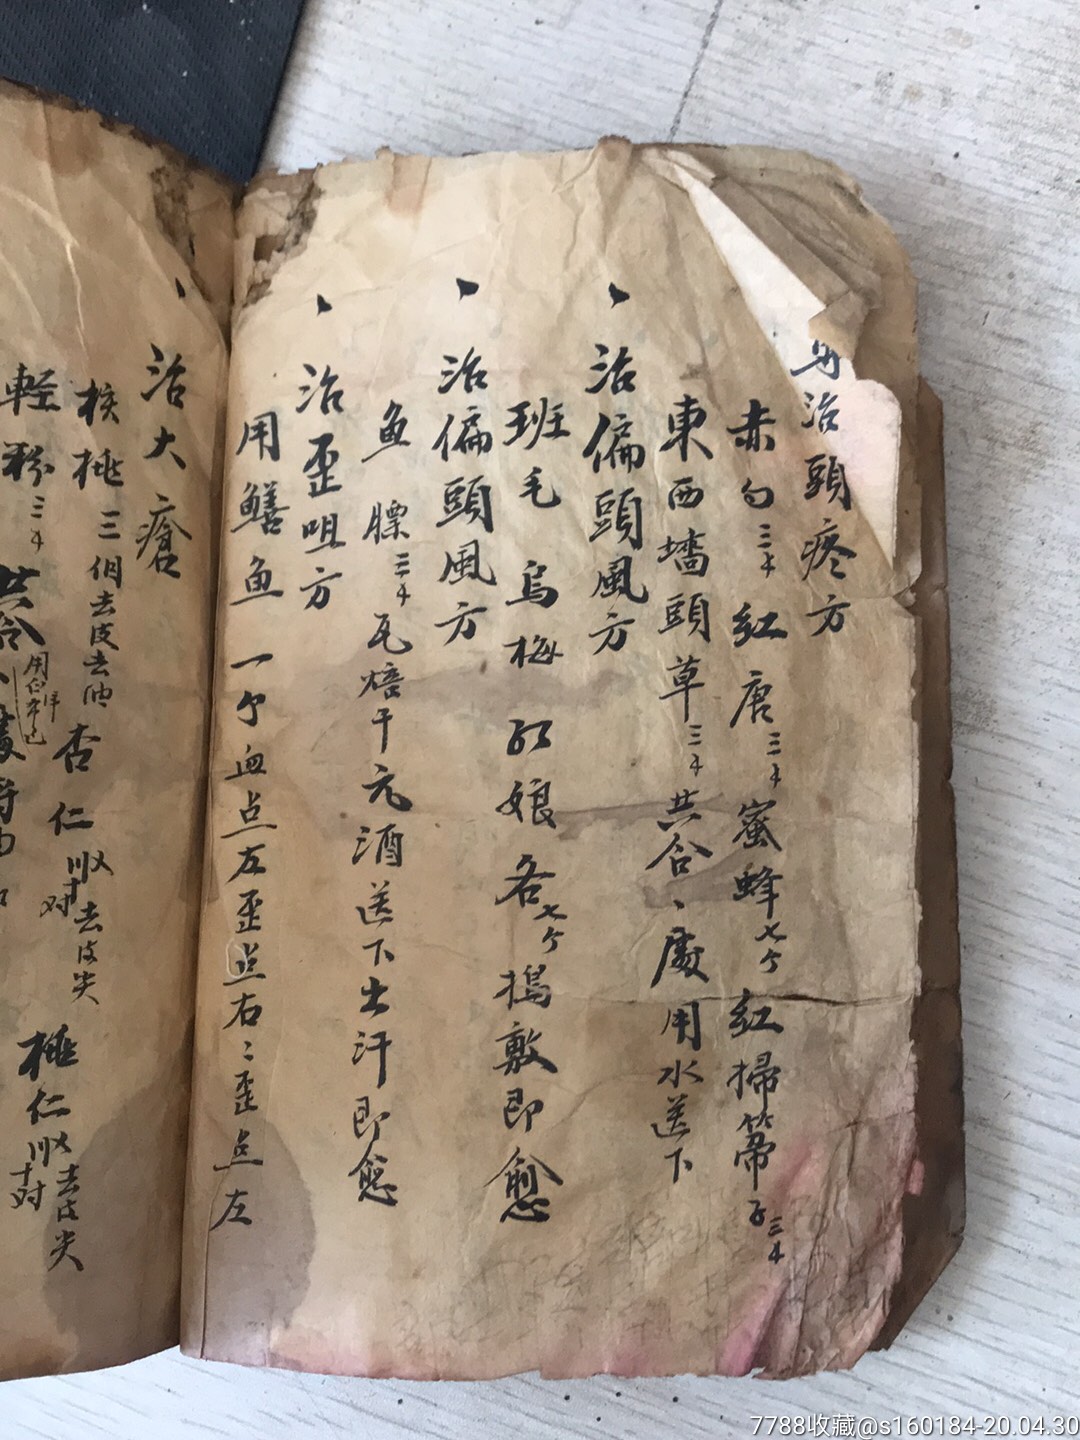 治頭疼方
赤勺三 紅唐三 蜜蜂七个 紅掃箒子三
東西墻頭草三 共合、處用水送下
治偏頭風方
班毛 烏梅 红娘各七个 搗敷即愈
治偏頭風方
鱼膘三 瓦焙干元酒送下土汗即愈
治歪咀方
用鱔鱼一个血点左歪点右〻歪点左
治大瘡
核桃三個去皮去油 杏仁 去皮尖 桃仁 去皮尖
輕粉三 共合
7788收藏@s160184-20.04.30